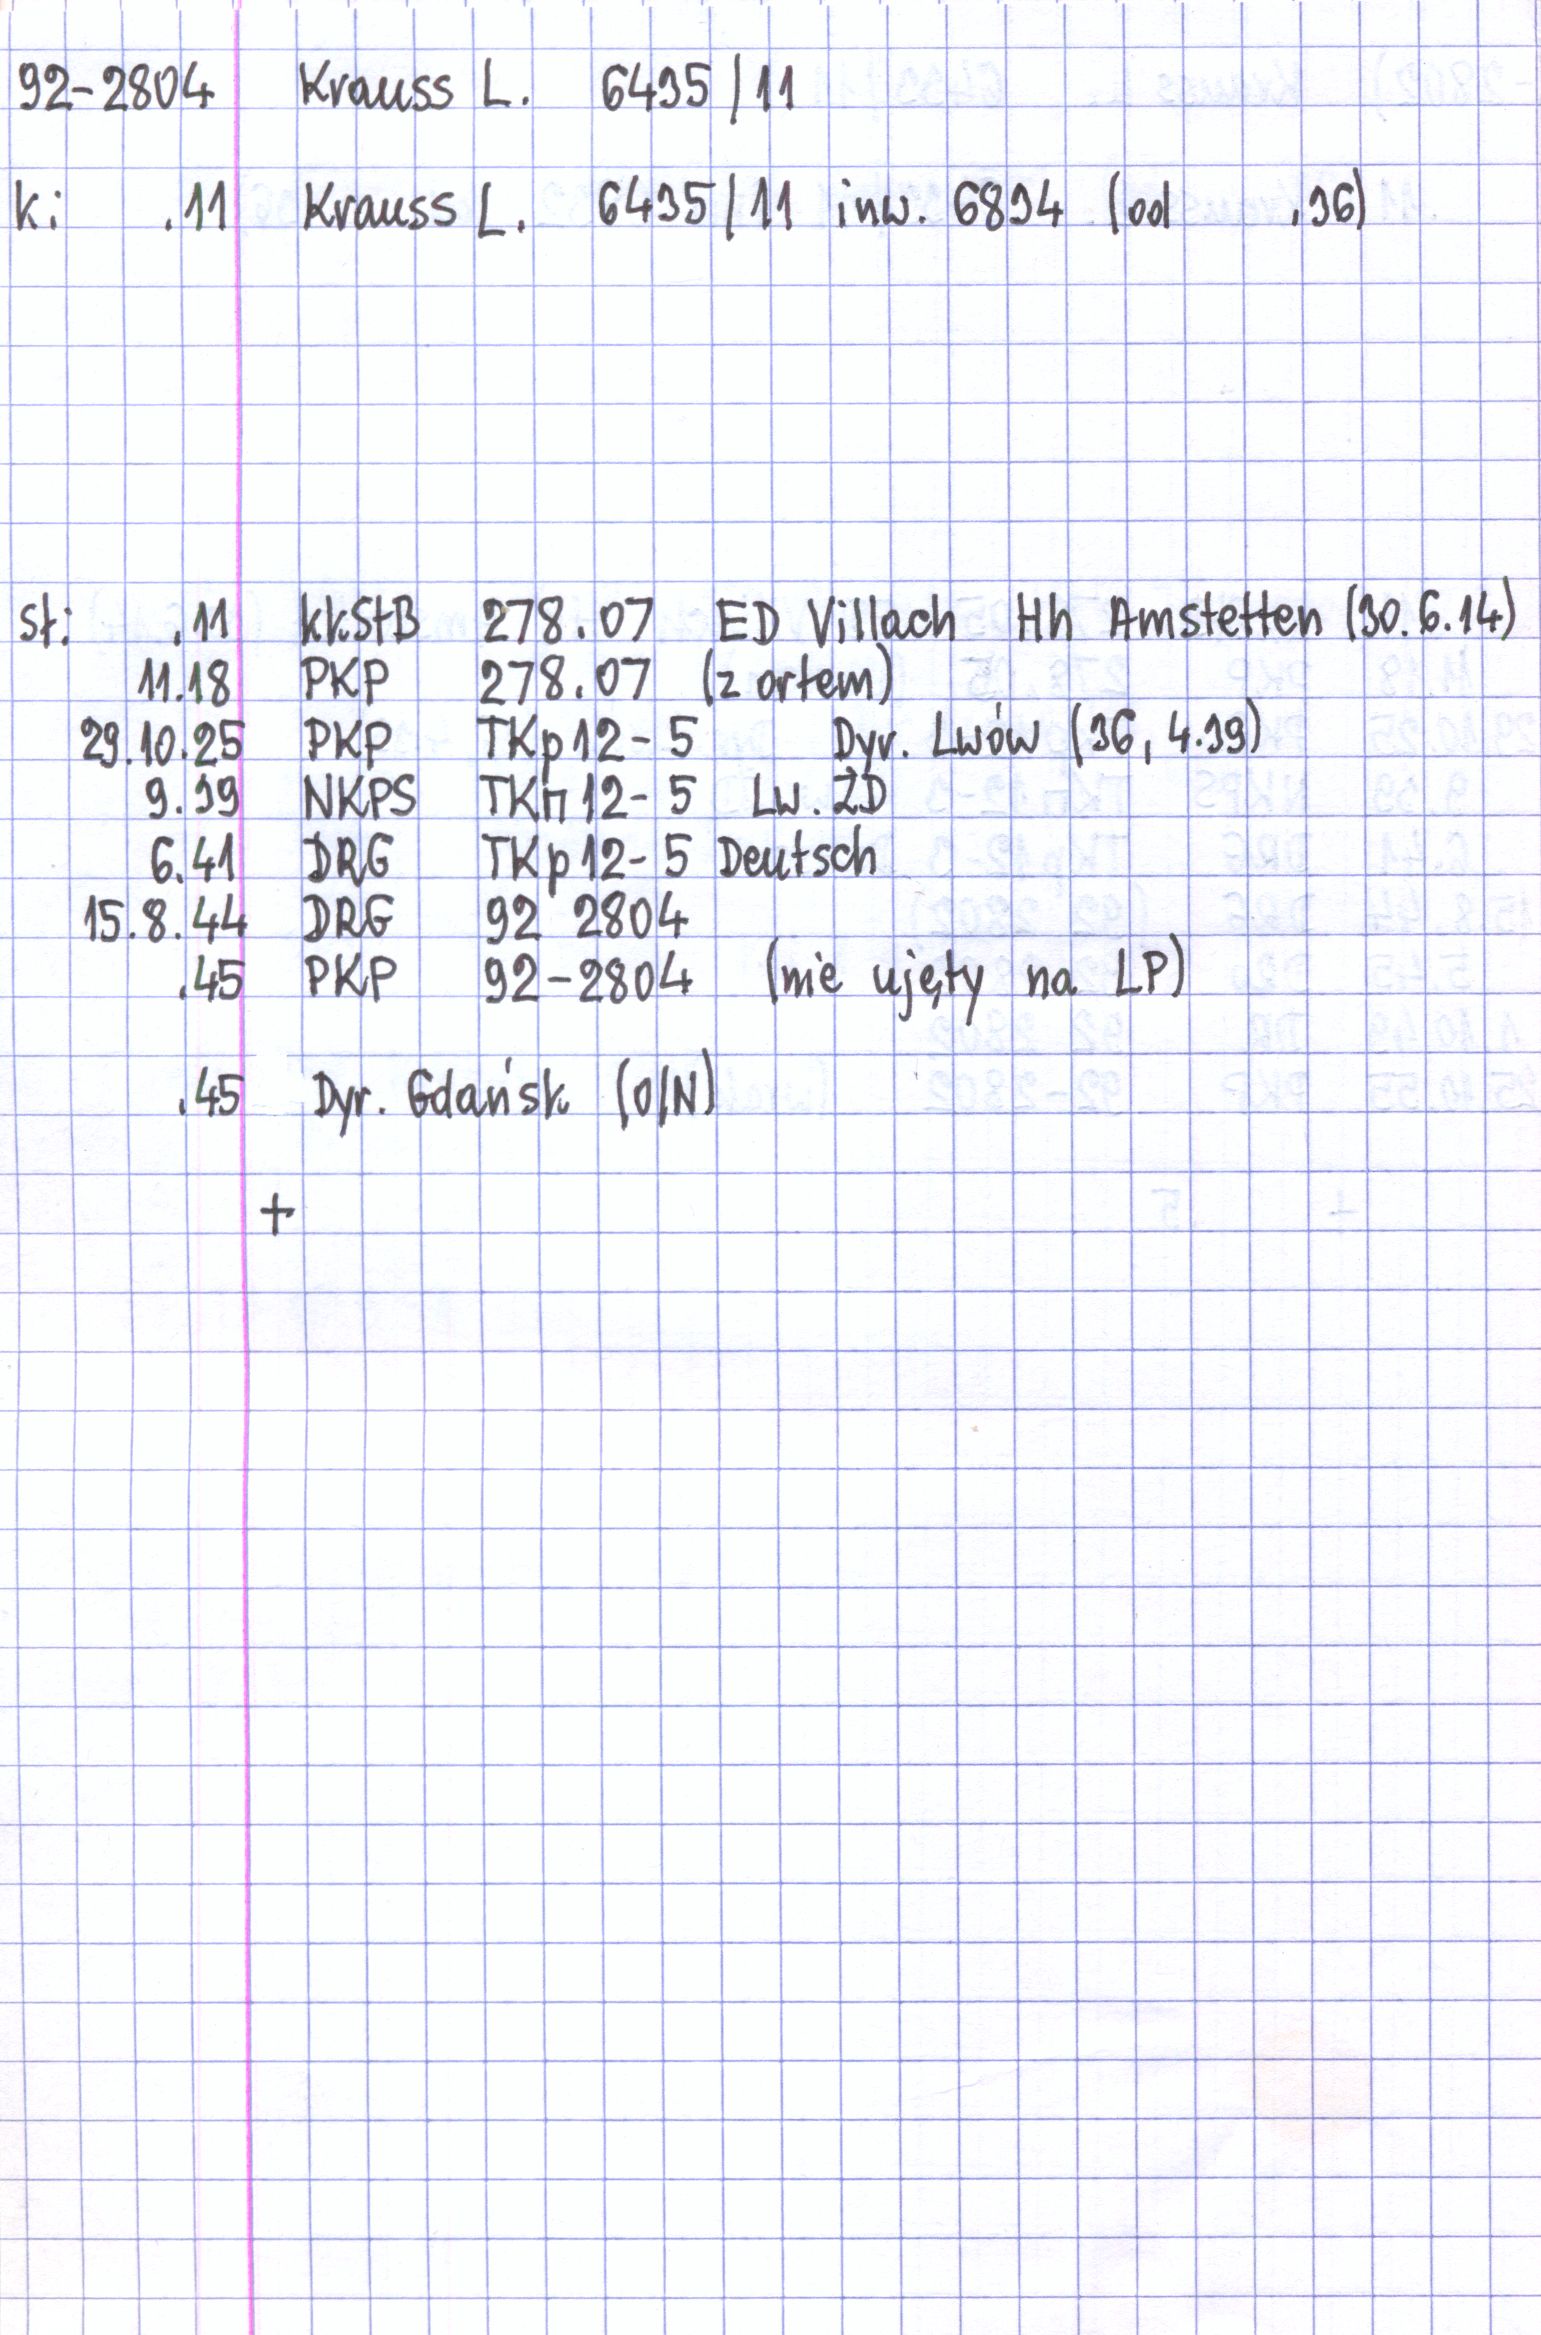 92-2804 Krauss L. 6435/11
k: .11 Krauss L. 6435/11 inw. 6834 (od .36)
st: .11 kkStB 278.07 ED Villach Hh Amstetten (30.6.14)
11.18 PKP 278.07 (z ortem)
29.10.25 PKP TKp12-5 Dyr. Lwów (36, 4.39)
9.39 NKPS TKп12-5 Lw. ŻD
6.41 DRG TKp12-5 Deutsch
15.8.44 DRG 92 2804
.45 PKP 92-2804 (nie ujęty na LP)
.45 Dyr. Gdańsk (O/N)
+